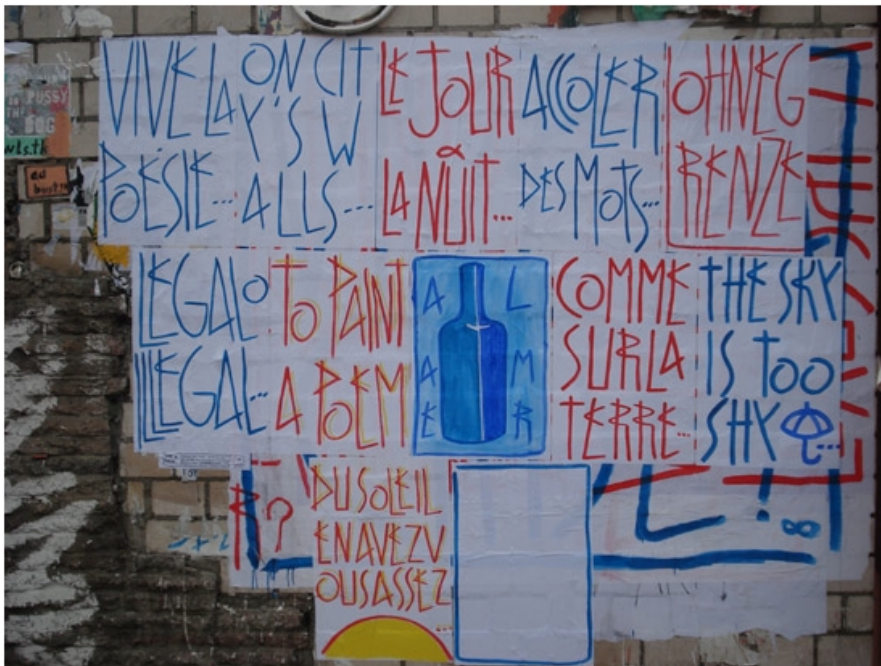 VIVE LA
POÉSIE...
ON CIT
Y'S W
ALLS...
LE JOUR
&
LA NUIT...
ACCOLER
DES MOTS...
OHNE G
RENZE
LEGAL O
ILLEGAL...
TO PAINT
A POEM
A L
A M
E R
COMME
SUR LA
TERRE...
THE SKY
IS TOO
SHY ...
DU SOLEIL
EN AVEZ V
OUS ASSEZ
...
PUSSY
DOG
ad